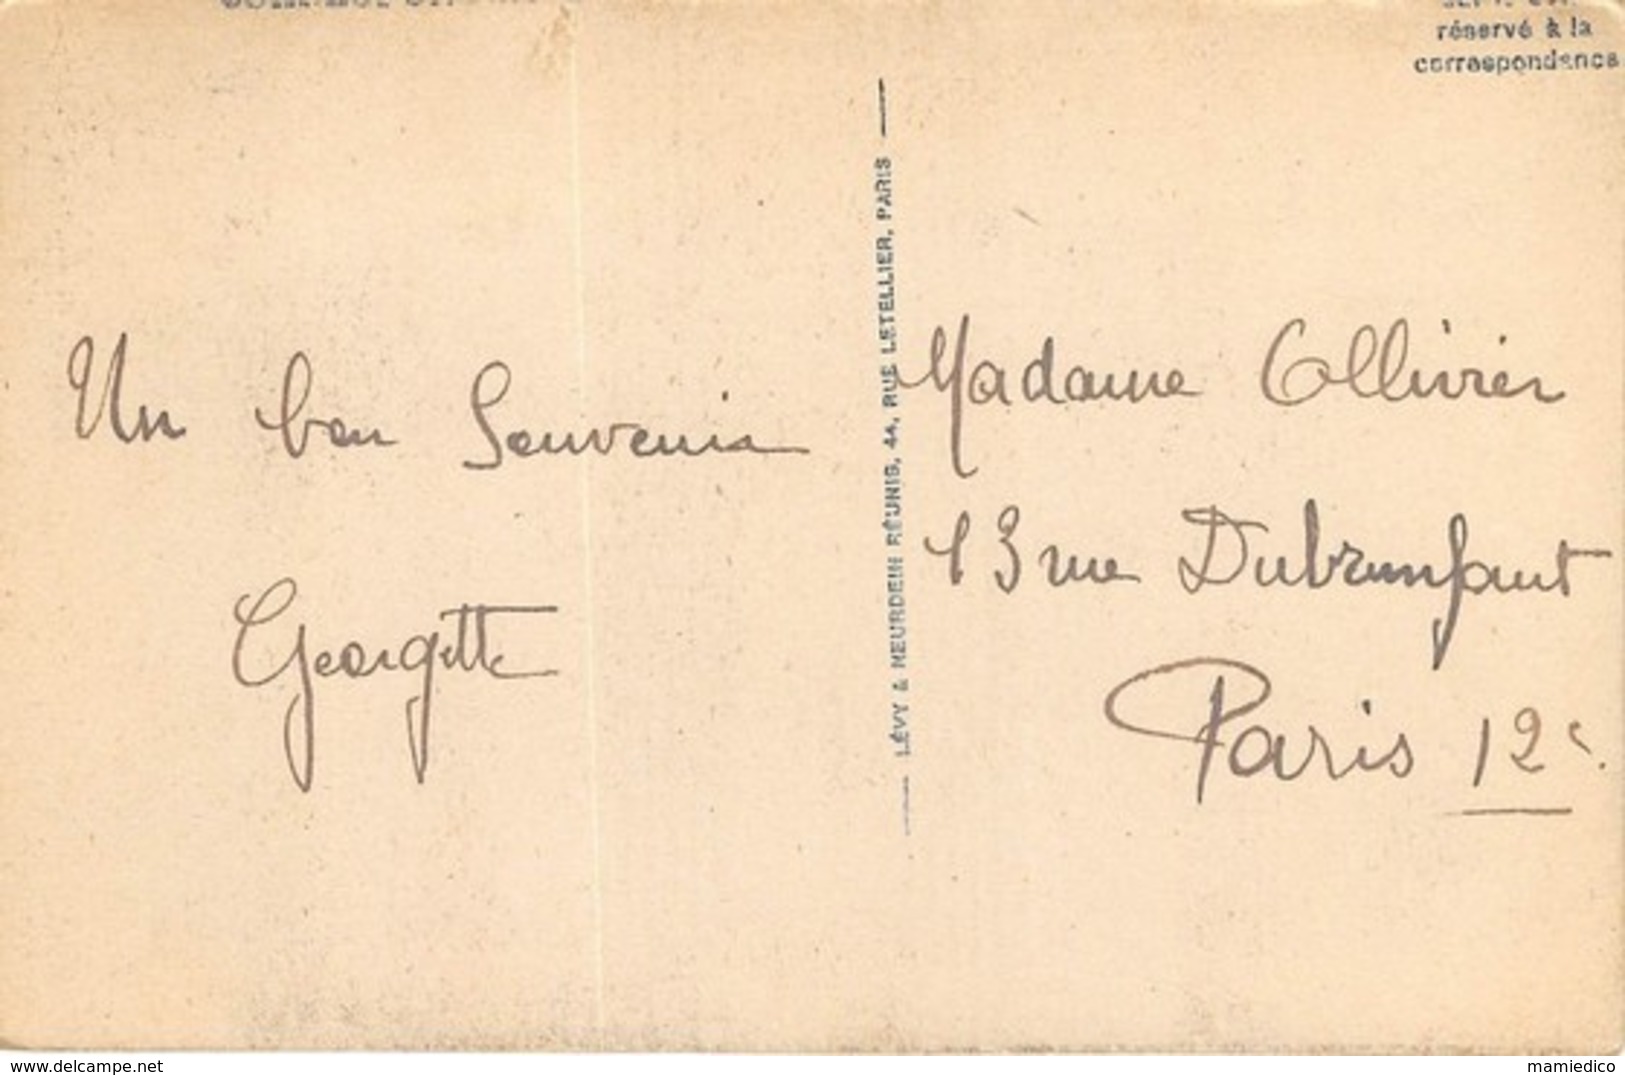 réservé à la
correspondance
Un bon Souvenir
Georgette
LÉVY & NEURDEIN RÉUNIS, 44, RUE LETELLIER, PARIS
Madame Ollivier
13 rue Dubrunfaut
Paris 12e.
www.delcampe.net
mamiedico